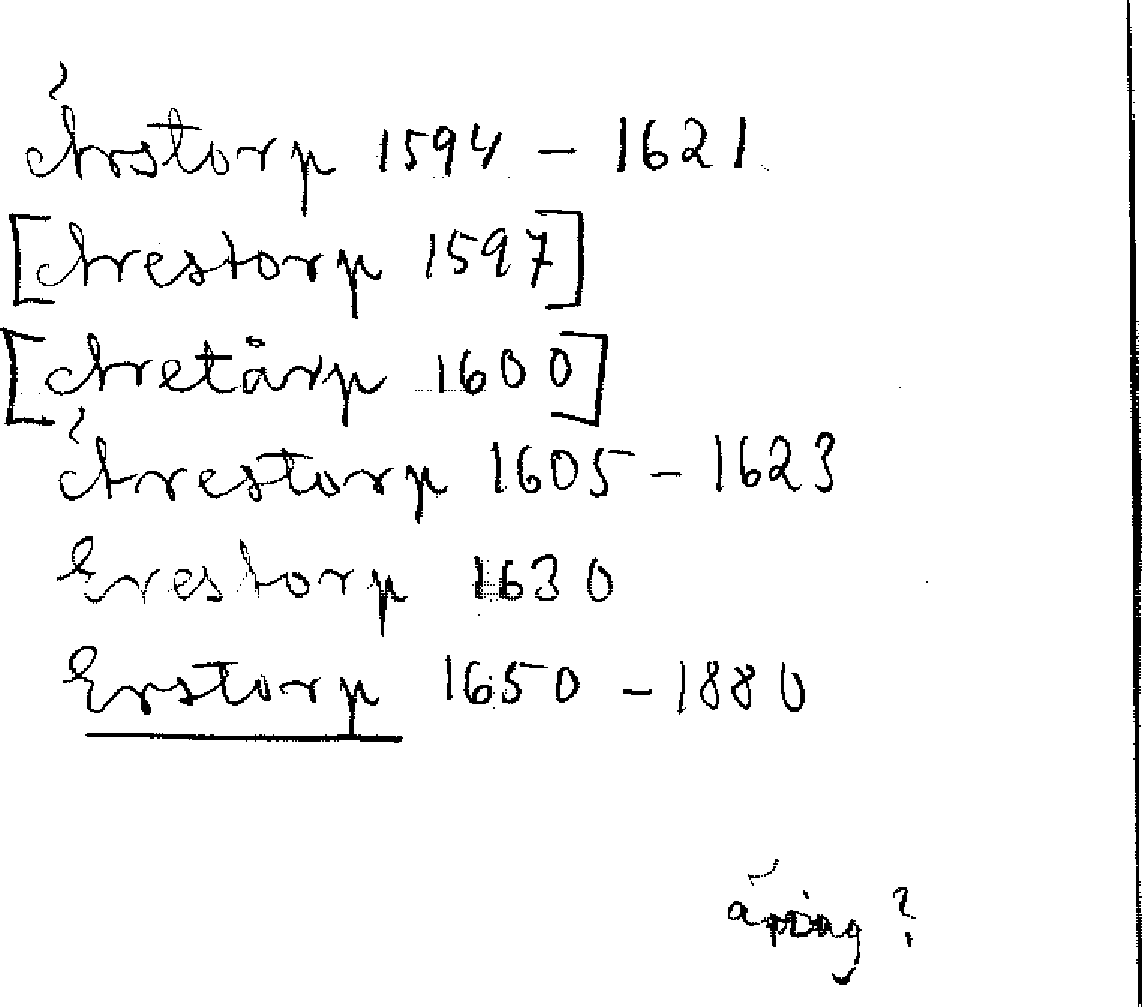 Ärstorp 1594 - 1621
[Arestorp 1597]
[Aretårp 1600]
Ärestorp 1605 - 1623
Erestorp 1630
Erstorp 1650 - 1880
?